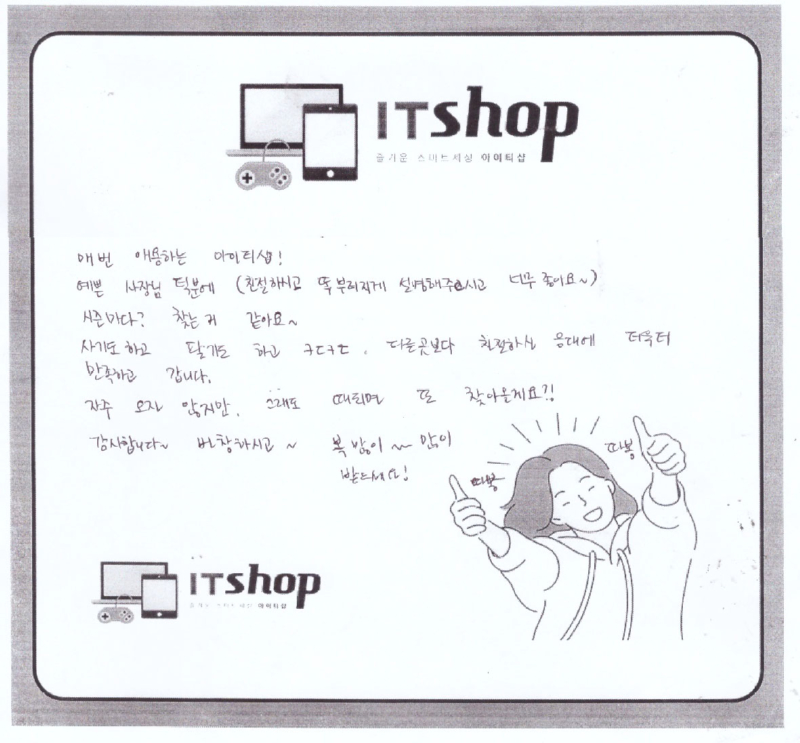 ITshop
즐거운 스마트세상 아이티샵
매번 애용하는 아이티샵!
예쁜 사장님 덕분에 (친절하시고 똑부러지게 설명해주시고 너무 좋아요~)
시즌마다? 찾는거 같아요~
사기도하고 팔기도 하고 ㅋㄷㅋㄷ. 다른곳보다 친절하신 응대에 더욱더
만족하고 갑니다.
자주 오진 않지만, 그래도 때되면 또 찾아올게요?!
감사합니다~ 번창하시고~ 복 많이~ 많이
받으세요!
따봉
따봉
ITshop
아이티샵